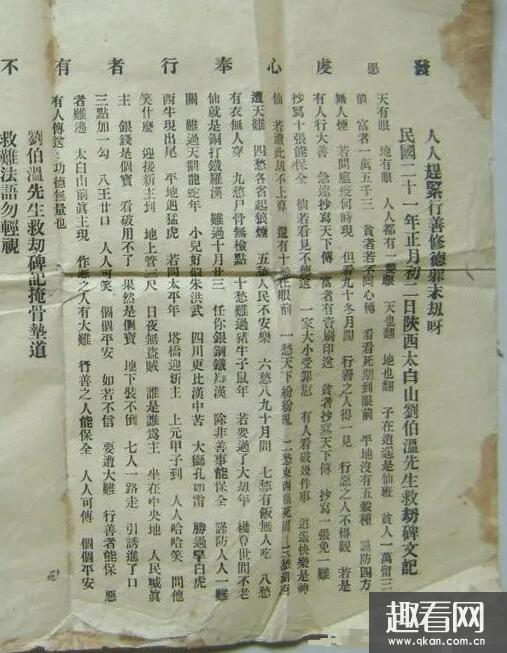 發虔心奉行者有不
人人趕緊行善修德躲末劫呀
民國二十一年正月初二日陝西太白山劉伯溫先生救劫碑文記
天有眼 地有眼 人人都有一雙眼 天也翻 地也翻 子在逍遙是仙班 貧人一萬留三
富者一萬五千三 貧者若不回心轉 看看死期到眼前 平地沒有五穀種 謹防四方
無人煙 若問瘟疫何時現 但看九十冬月間 行善之人得一見 行惡之人不得觀 若是
有人行大善 急速抄寫天下傳 富者有資刷印送 貧者抄寫天下傳 抄寫一張免一難
抄寫十張能保全 倘若看見不傳送 一家大小受罪愆 有人看破幾件事 逍遙快樂是神
仙 若遭此劫不上算 還有十愁在眼前 一愁天下紛紛亂 二愁東西餓死 三愁湖廣
遭大難 四愁各省起狼煙 五愁人民不安樂 六愁八九十月間 七愁有飯無人吃 八愁
有衣無人穿 九愁尸骨無檢點 十愁難過豬牛子鼠年 若要過了大劫年 算世間不老
仙就是銅打鐵羅漢 難過十月廿三 任你銀鋼鐵羅漢 除非善事能保全 謹防人人一難
關 難過天翻龍蛇年 小兒好似朱洪武 四川更比漢中苦 大獅孔如雷 勝過擎白虎
西牛現出尾 平地遇猛虎 若問太平年 塔橋迎新主 上元甲子到 人人哈哈笑 問他
笑什麼 迎接新主到 地上管三尺 日夜無盜賊 誰是誰為主 坐在中央地 人民喊真
主 銀錢是個寶 看破用不了 果然是個寶 地下裝不倒 七人一路走 引誘進了口
三點加一勾 八王廿口 人人可笑 個個平安 如若不信 要遭大難 行善者能保 惡
者難逃 太白山前真主現 作惡之人有大難 行善之人能保全 人人可傳 個個平安
有人傳送 功德無量也
劉伯溫先生救劫碑記掩骨墊道
救難法語勿輕視
趣看网
www.qkan.com.cn